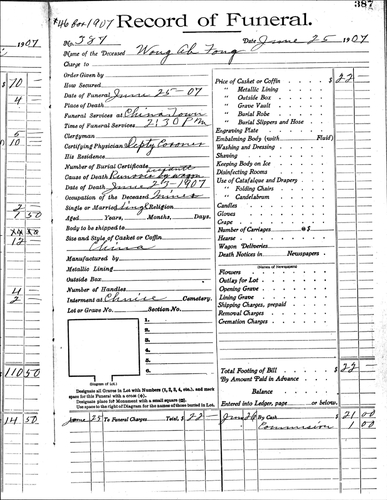 387
#46 for 1907
Record of Funeral.
1907
No. 387
Date June 25 1907
Name of the Deceased Wong Ah Fong
Charge to
Order Given by
Hour Secured
Date of Funeral June 25-07
Place of Death
Funeral Services at China Town
Time of Funeral Services 2:30 PM
Clergyman
Certifying Physician Depty Coroner
His Residence
Number of Burial Certificate
Cause of Death
Date of Death June 1907
Occupation of the Deceased Miner
Single or Married Single Religion
Aged Years, Months, Days.
Body to be shipped to
Size and Style of Casket or Coffin
China
Manufactured by
Metallic Lining
Outside Box
Number of Handles
Interment at Chinise Cemetery.
Lot or Grave No. Section No.
1.
2.
3.
4.
5.
6.
(Diagram of Lot.)
Designate all Graves in Lot with Numbers (1, 2, 3, 4, etc.), and mark
space for this Funeral with a cross (+).
Designate place for Monument with a small square (□).
Use space to the right of Diagram for the names of those buried in Lot.
June 25 To Funeral Charges Total, $ 22 —
Price of Casket or Coffin $ 22 —
" Metallic Lining
" Outside Box
" Grave Vault
" Burial Robe
" Burial Slippers and Hose
Engraving Plate
Embalming Body (with Fluid)
Washing and Dressing
Shaving
Keeping Body on Ice
Disinfecting Rooms
Use of Catafalque and Drapery
" Folding Chairs
" Candelabrum
Candles
Gloves
Crape
Number of Carriages @ $
Hearse
Wagon Deliveries
Death Notices in Newspapers
Flowers
Outlay for Lot
Opening Grave
Lining Grave
Shipping Charges, prepaid
Removal Charges
Cremation Charges
Total Footing of Bill $ 22 —
By Amount Paid in Advance
Balance
Entered into Ledger, page or below.
June 26 By Cash $ 21 00
Commision 1 00
$ 70 —
4 —
6 —
10 —
2 —
1 50
12 —
4 —
2 —
110 50
14 50